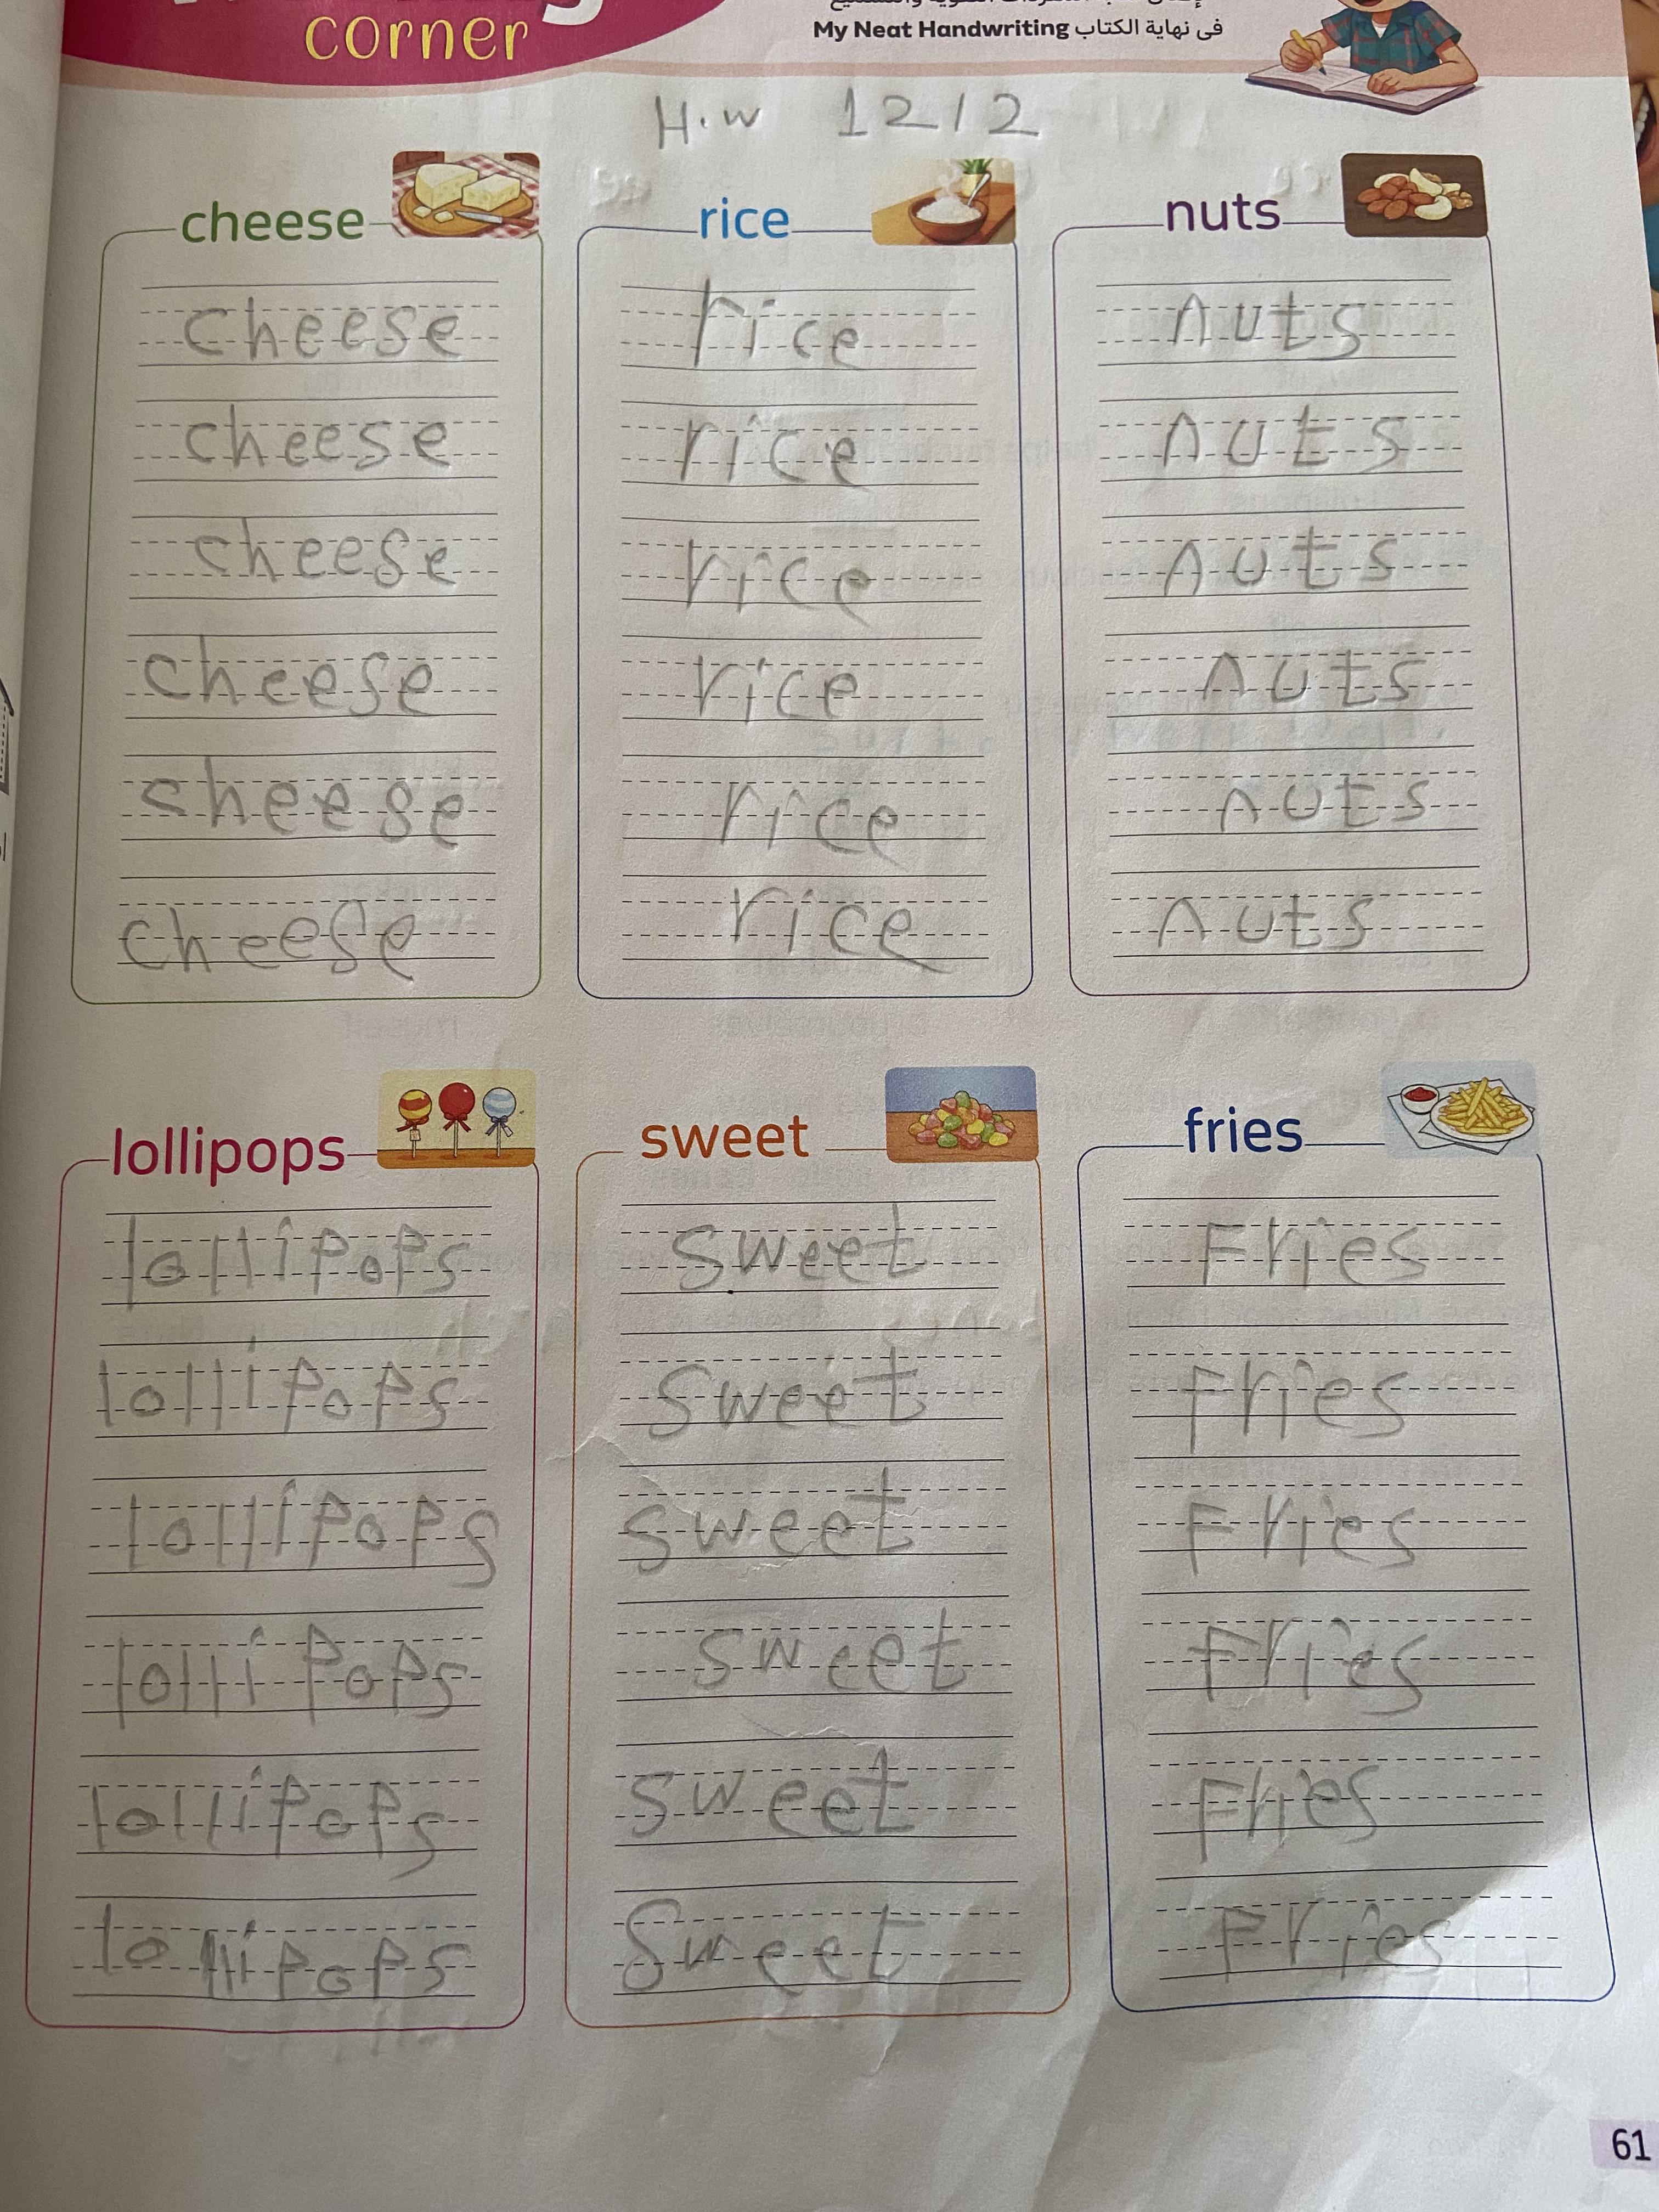 corner
فى نهاية الكتاب My Neat Handwriting
H.w 12/2
cheese
rice
nuts
cheese
cheese
cheese
cheese
cheese
cheese
rice
rice
rice
rice
rice
rice
nuts
nuts
nuts
nuts
nuts
nuts
lollipops
sweet
fries
lollipops
lollipops
lollipops
lollipops
lollipops
lollipops
sweet
sweet
sweet
sweet
sweet
Sweet
Fries
Fries
Fries
Fries
Fries
Fries
61